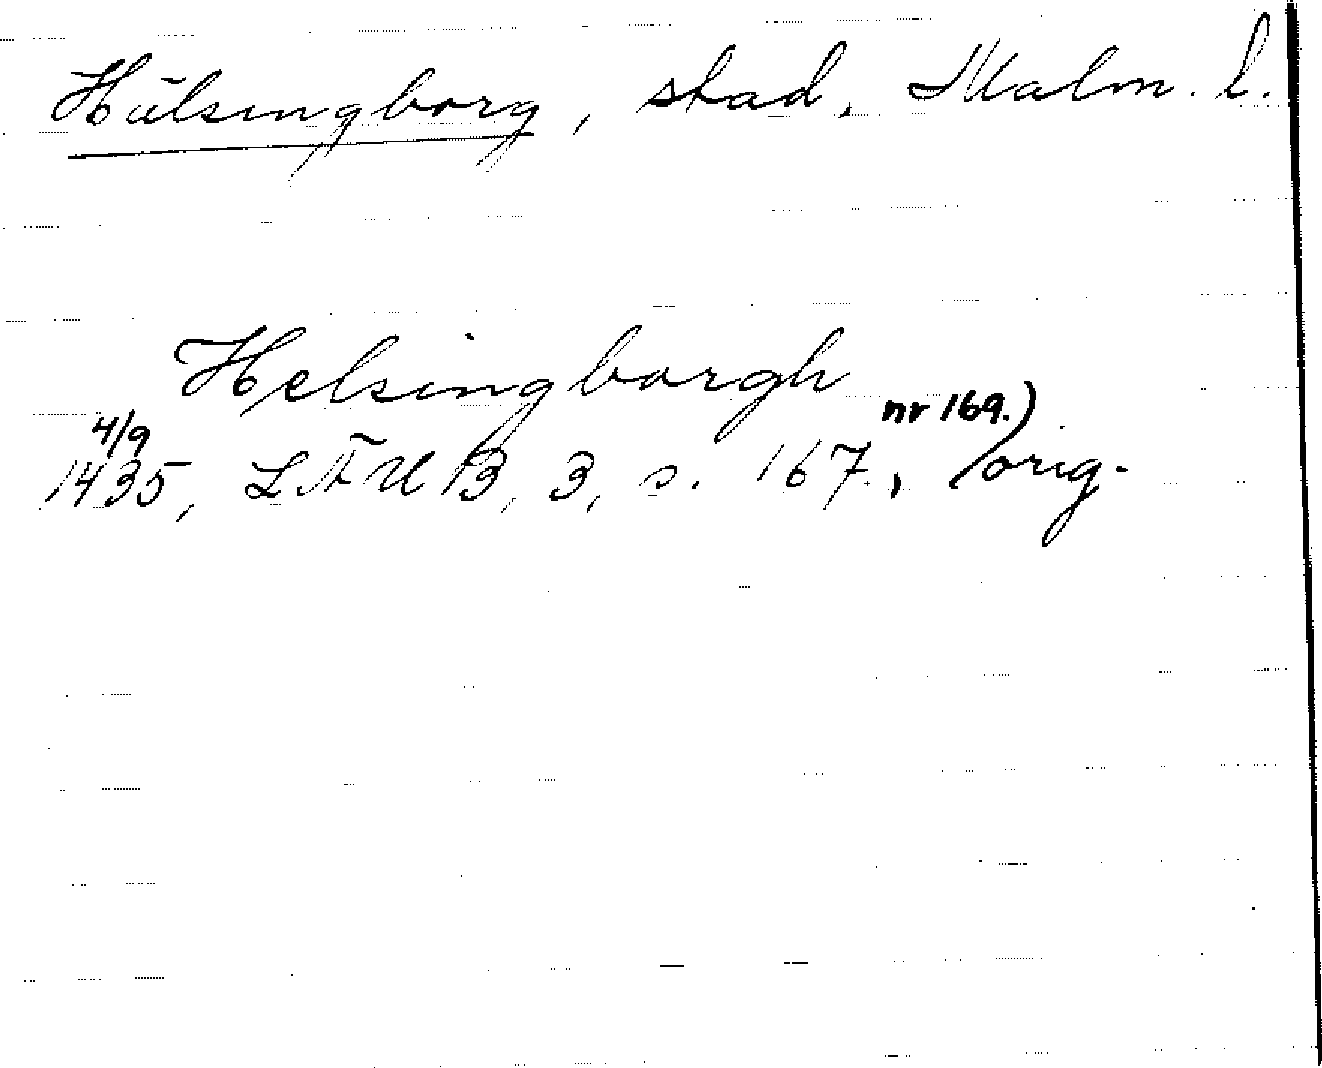 Hälsingborg, stad, Malm. l.
Helsingborgh
4/9 nr 169.)
1435, LÄUB, 3, s. 167, orig.